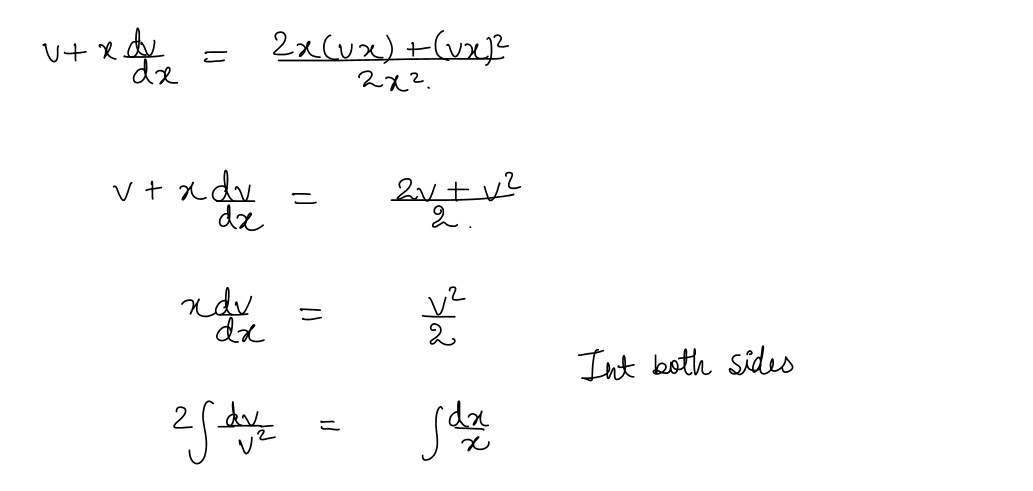 v + x dv/dx = 2x(vx) + (vx)²/2x².
v + x dv/dx = 2v + v²/2.
x dv/dx = v²/2
Int both sides
2∫ dv/v² = ∫ dx/x